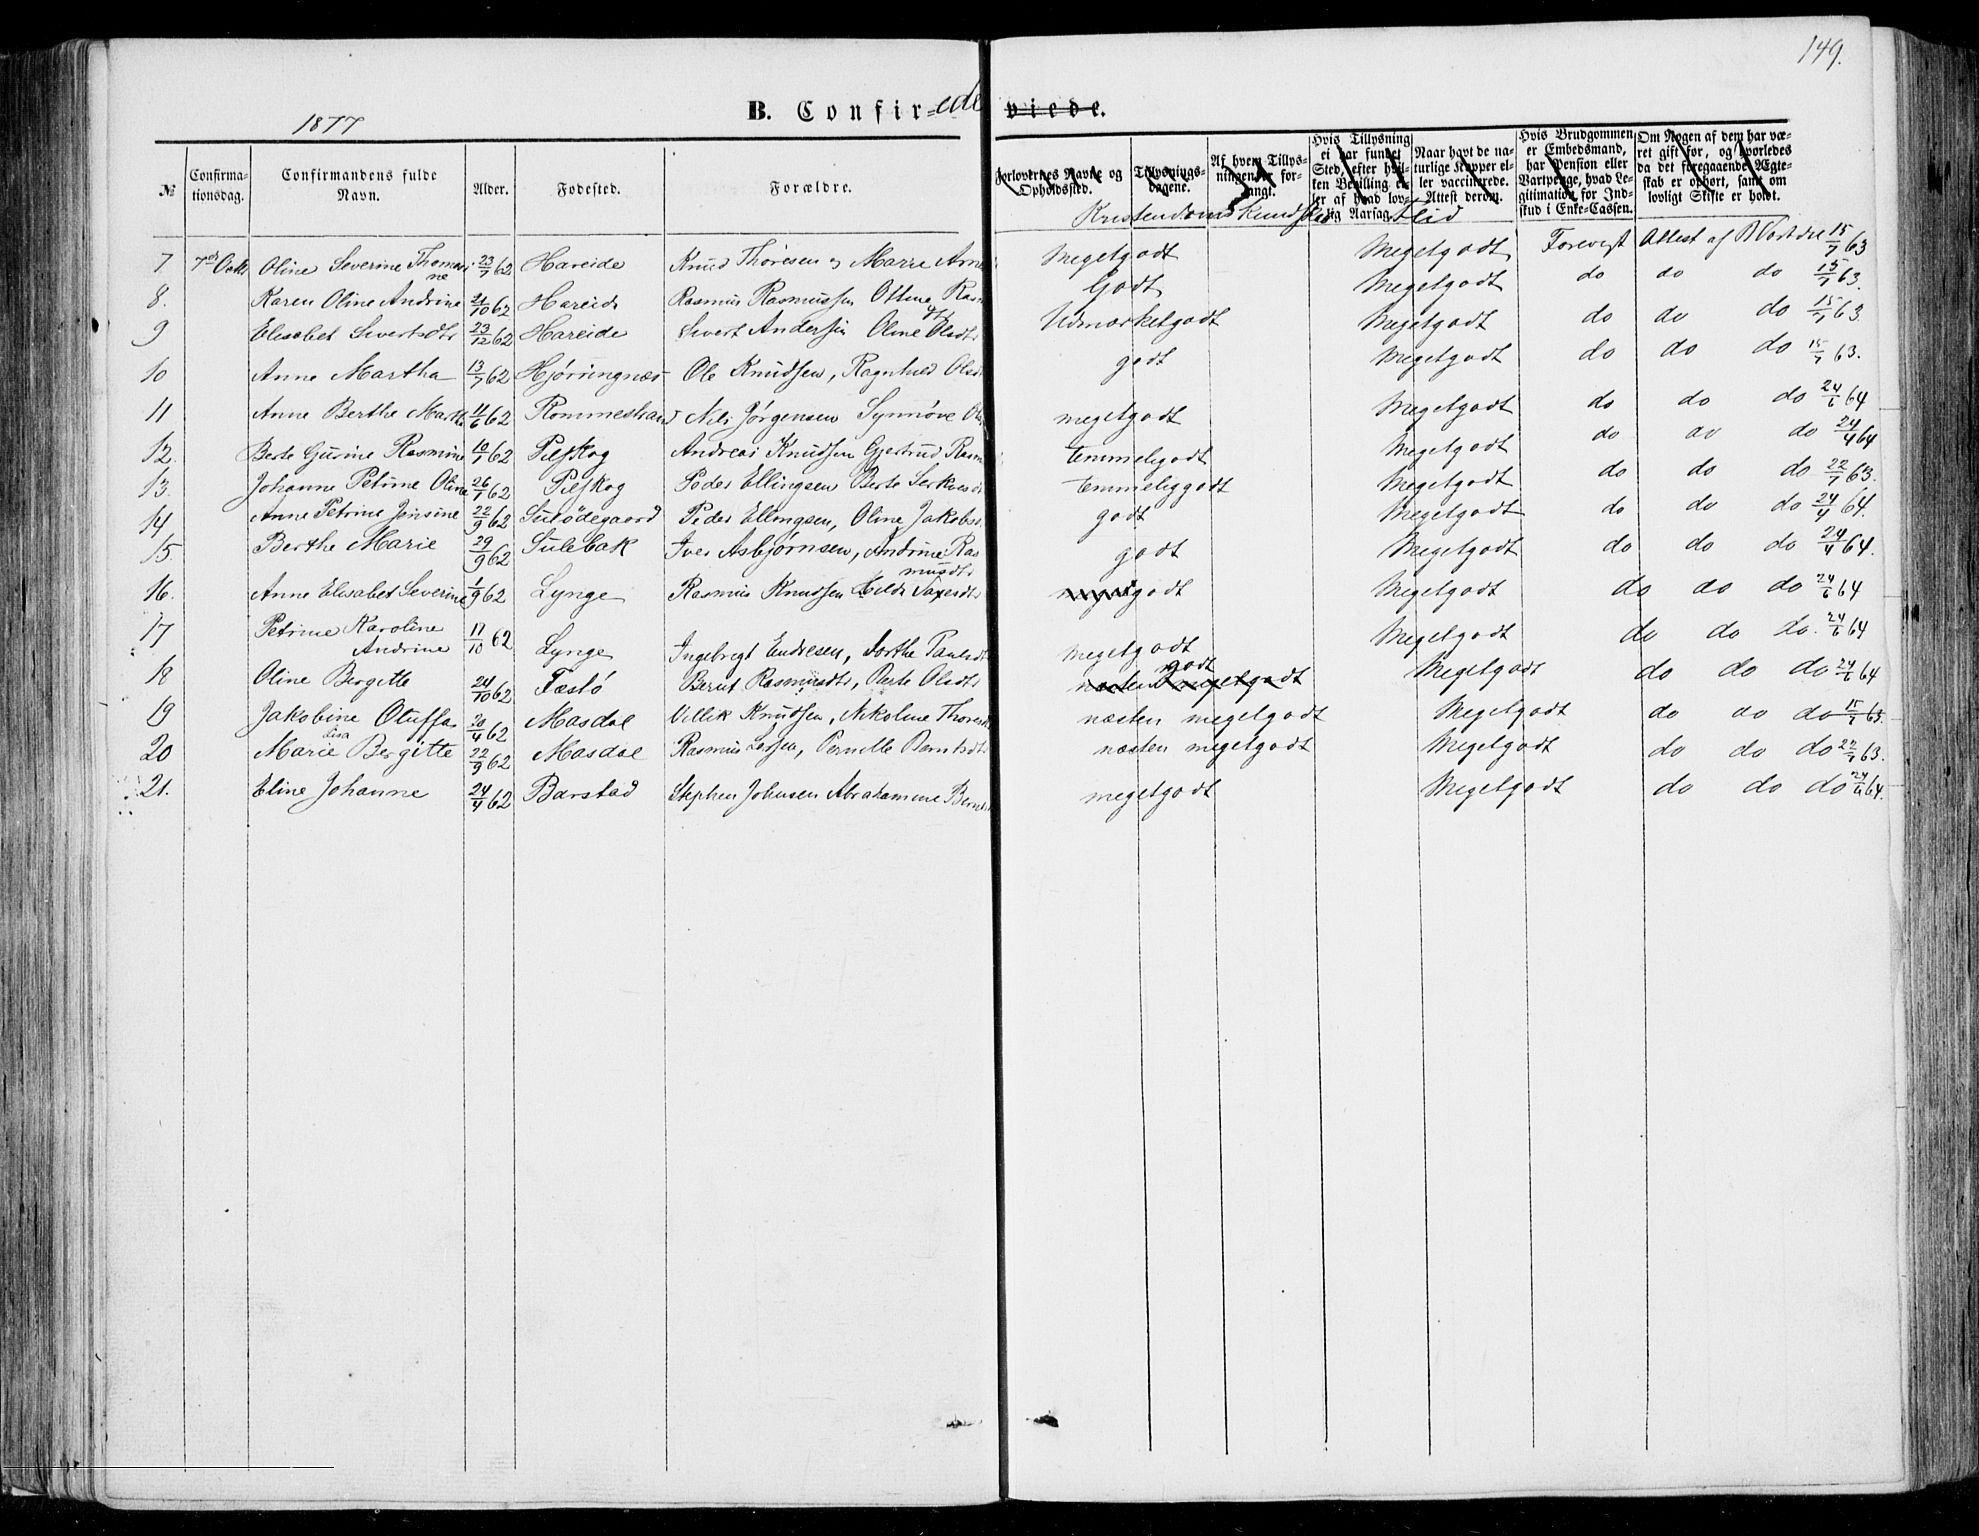 149.
1877
B. Confir=ede viede.
№ Confirmationsdag. Confirmandens fulde Navn. Alder. Fødested. Forældre. Forlovernes Navne og Opholdssted. Tillysningsdagene. Af hvem Tillysningen er forlangt. Hvis Tillysning ei har fundet Sted, efter hvilken Bevilling eller af hvad lovlig Aarsag. Naar havt de naturlige Kopper eller vaccinerede. Attest derom. Hvis Brudgommen er Embedsmand, har Pension eller Vartpenge, hvad Legitimation for Indskud i Enke-Cassen. Om Nogen af dem har været gift før, og hvorledes da det foregaaende Ægteskab er ophørt, samt om lovligt Skifte er holdt.
Kristendomskundskab Flid
7 7de Octb Oline Severine Thomasine 23/7 62 Hareide Knud Thoresen og Marie Arne Megetgodt Megetgodt Forevist Attest af 15/7 63
8. Karen Oline Andrine 21/10 62 Hareide Rasmus Rasmussen Ottine Ras Godt Megetgodt do do do 15/7 63.
9 Elisabet Sivertsdtr 23/12 62 Hareide Sivert Andersen Oline Olsdtr Udmærketgodt Megetgodt do do do 15/7 63
10 Anne Martha 13/7 62 Hjørringnæs Ole Knudsen, Ragnhild Olsd godt Megetgodt do do do 15/7 63.
11 Anne Berthe Marth 11/6 62 Rommestrand Nils Jørgensen Synnøve Ols megetgodt Megetgodt do do do 24/6 64
12. Berte Gurine Rasmine 10/1 62 Pilskog Andreas Knudsen Gjertrud Rasm temmeligodt Megetgodt do do do 24/4 64
13. Johanne Petrine Oline 26/1 62 Pilskog Peder Ellingsen Berte temmeliggodt Megetgodt do do do 22/7 63.
14 Anne Petrine Jensine 22/9 62 Sulødegaard Peder Ellingsen, Oline Jakobs godt Megetgodt do do do 24/4 64.
15. Berthe Marie 29/9 62 Sulebak Iver Asbjørnsen, Andrine Rasmusdtr godt Megetgodt do do do 24/4 64.
16. Anne Elisabet Severine 1/9 62 Lynge Rasmus Knudsen Hilde godt Megetgodt do do do 24/6 64
17 Petrine Karoline Andrine 17/10 62 Lynge Ingebregt Endresen, Dorthe Paulsdt megetgodt Megetgodt do do do. 24/6 64
18 Oline Bergitte 24/10 62 Festø Berut Rasmusdtr, Berte Olsdtr næsten megetgodt godt Megetgodt do do do 24/6 64
19 Jakobine Oluffa 20/4 62 Masdal Villik Knudsen, Nikoline Thores næsten megetgodt Megetgodt do do do 15/7 63.
20 Marie Lisa Bergitte 22/9 62 Masdal Rasmus Larsen, Pernille Berntsdtr næsten megetgodt Megetgodt do do do 22/7 63.
21. Eline Johanne 24/4 62 Barstad Stephen Johnsen Abrahamine Bernt megetgodt Megetgodt do do do 24/6 64.